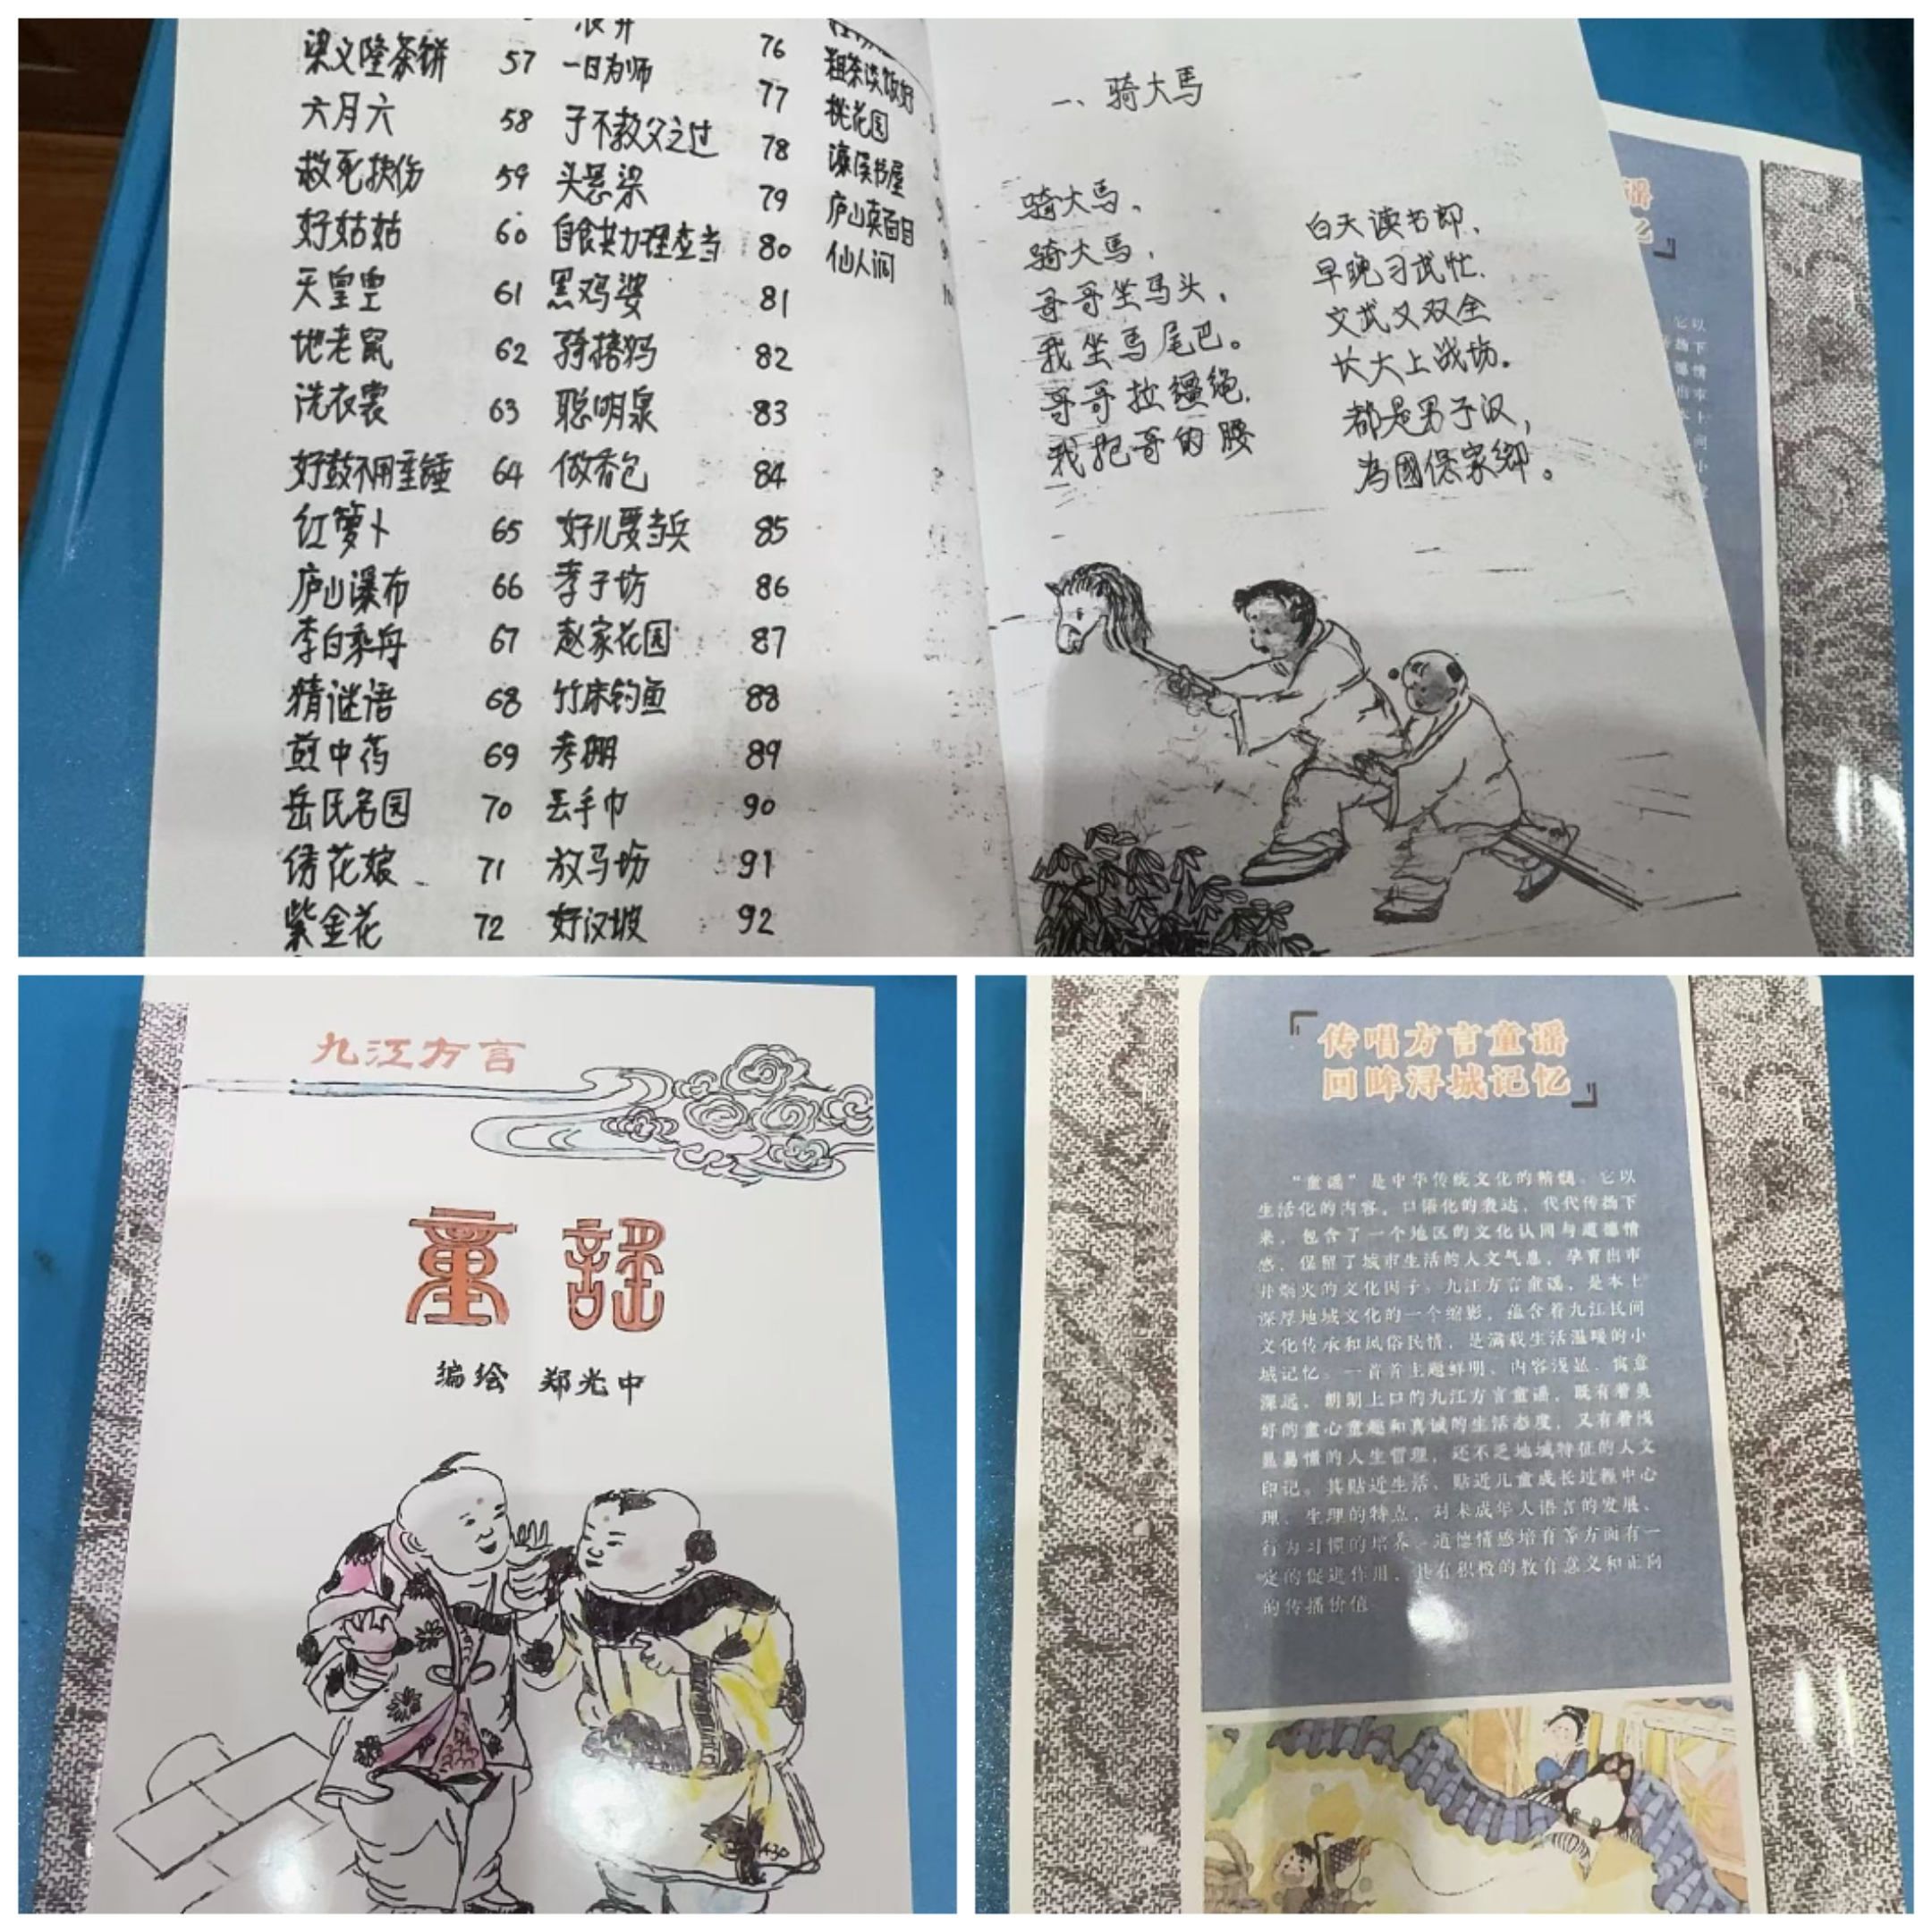 梁义隆茶饼 57
六月六 58
救死扶伤 59
好姑姑 60
天皇皇 61
地老鼠 62
洗衣裳 63
好鼓不用重锤 64
红萝卜 65
庐山瀑布 66
李白乘舟 67
猜谜语 68
煎中药 69
岳氏名园 70
绣花娘 71
紫金花 72
76
一日为师 77
子不教父之过 78
头悬梁 79
自食其力理应当 80
黑鸡婆 81
骑撘妈 82
聪明泉 83
做香包 84
好儿要当兵 85
李子坊 86
赵家花园 87
竹床钓鱼 88
考棚 89
丢手巾 90
放马场 91
好汉坡 92
粗茶淡饭好
桃花园
濂溪书屋
庐山真面目
仙人洞
一、骑大马
骑大马,
骑大马,
哥哥坐马头,
我坐马尾巴。
哥哥拉缰绳,
我抱哥的腰
白天读书郎,
早晚习武忙.
文武又双全
长大上战场。
都是男子汉,
為國保家鄉。
九江方言
童謡
编绘 郑光中
「传唱方言童谣
回眸浔城记忆」
“童谣”是中华传统文化的精髓。它以
生活化的内容,口语化的表达,代代传扬下
来,包含了一个地区的文化认同与道德情
感,保留了城市生活的人文气息,孕育出市
井烟火的文化因子。九江方言童谣,是本土
深厚地域文化的一个缩影,蕴含着九江民间
文化传承和风俗民情,是满载生活温暖的小
城记忆。一首首主题鲜明、内容浅显、寓意
深远、朗朗上口的九江方言童谣,既有着美
好的童心童趣和真诚的生活态度,又有着浅
显易懂的人生哲理,还不乏地域特征的人文
印记。其贴近生活、贴近儿童成长过程中心
理、生理的特点,对未成年人语言的发展、
行为习惯的培养、道德情感培育等方面有一
定的促进作用,具有积极的教育意义和正向
的传播价值